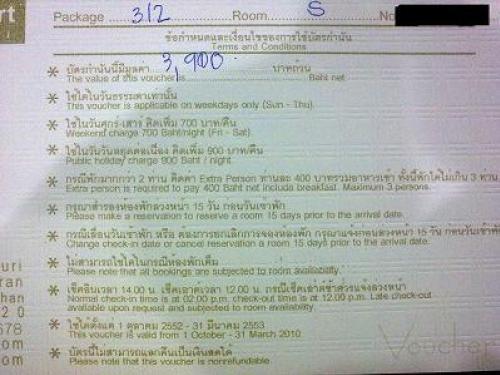 rt
Package 3/2 Room S No
ข้อกำหนดและเงื่อนไขของการใช้บัตรกำนัน
Terms and Conditions
* บัตรกำนันนี้มีมูลค่า 3,900. บาทถ้วน
The value of this voucher is Baht net
* ใช้ได้ในวันธรรมดาเท่านั้น
This voucher is applicable on weekdays only (Sun - Thu).
* ใช้ในวันศุกร์-เสาร์ คิดเพิ่ม 700 บาท/คืน
Weekend charge 700 Baht/night (Fri - Sat).
* ใช้ในวันหยุดต่อเนื่อง คิดเพิ่ม 900 บาท/คืน
Public holiday charge 900 Baht / night.
* กรณีพักมากกว่า 2 ท่าน คิดค่า Extra Person ท่านละ 400 บาทรวมอาหารเช้า ทั้งนี้พักได้ไม่เกิน 3 ท่าน
Extra person is required to pay 400 Baht net include breakfast. Maximum 3 persons.
* กรุณาสำรองห้องพักล่วงหน้า 15 วัน ก่อนวันเข้าพัก
Please make a reservation to reserve a room 15 days prior to the arrival date.
* กรณีเลื่อนวันเข้าพัก หรือ ต้องการยกเลิกการจองห้องพัก กรุณาแจ้งก่อนล่วงหน้า 15 วัน ก่อนวันเข้าพัก
Change check-in date or cancel reservation a room 15 days prior to the arrival date.
* ไม่สามารถใช้ได้ในกรณีห้องพักเต็ม
Please note that all bookings are subjected to room availability.
* เช็คอินเวลา 14.00 น. เช็คเอาต์เวลา 12.00 น. กรณีเช็คเอาต์ช้าควรแจ้งล่วงหน้า
Normal check-in time is at 02.00 pm. check-out time is at 12.00 pm. Late check-out
available upon request and subjected to room availability
* ใช้ได้ตั้งแต่ 1 ตุลาคม 2552 - 31 มีนาคม 2553
This voucher is valid from 1 October - 31 March 2010
* บัตรนี้ไม่สามารถแลกคืนเป็นเงินสดได้
Please note that this voucher is nonrefundable.
uri
ran
han
20
678
om
om
Voucher